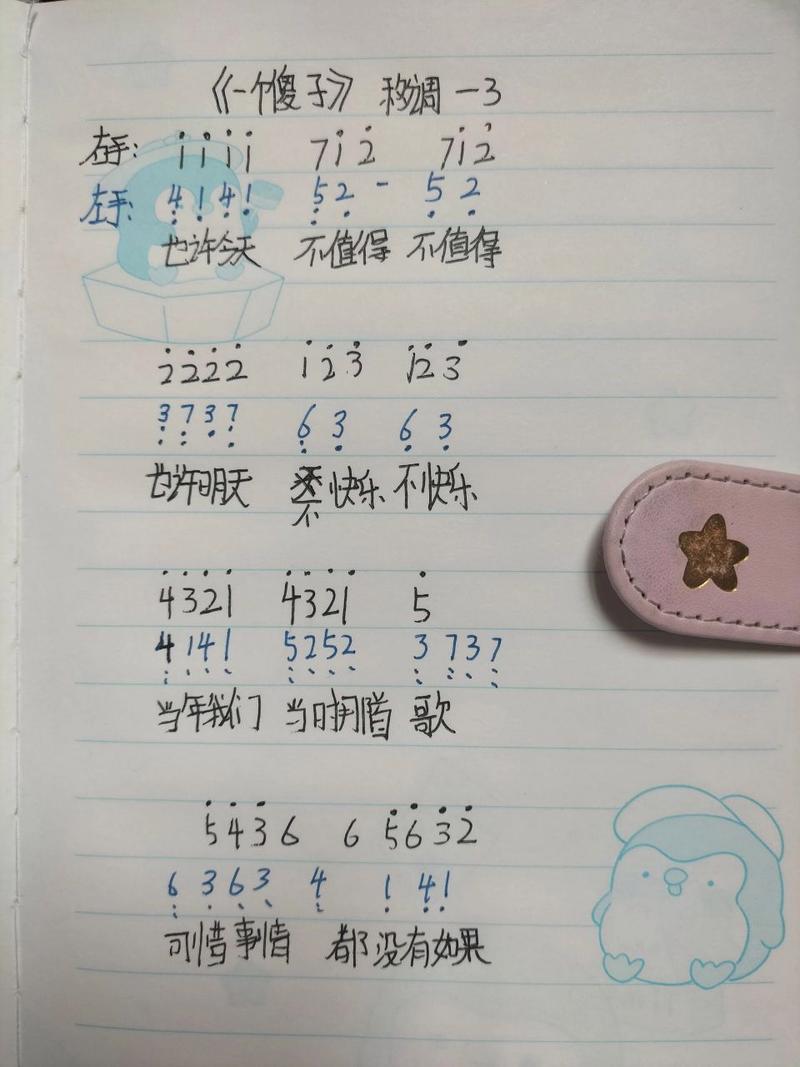 《一个傻子》 移调 -3
右手: i̇ i̇ i̇ i̇ 7 i̇ 2̇ 7 i̇ 2̇
左手: 4 1 4 1 5 2 - 5 2
也许今天 不值得 不值得
2̇ 2̇ 2̇ 2̇ 1̇ 2̇ 3̇ 1̇ 2̇ 3̇
3 7 3 7 6 3 6 3
也许明天 不快乐 不快乐
4̇ 3̇ 2̇ 1̇ 4̇ 3̇ 2̇ 1̇ 5̇
4 1 4 1 5 2 5 2 3 7 3 7
当年我们 当时拥着 歌
5̇ 4̇ 3̇ 6 6 5̇ 6̇ 3̇ 2̇
6 3 6 3 4 1 4 1
可惜事情 都没有如果